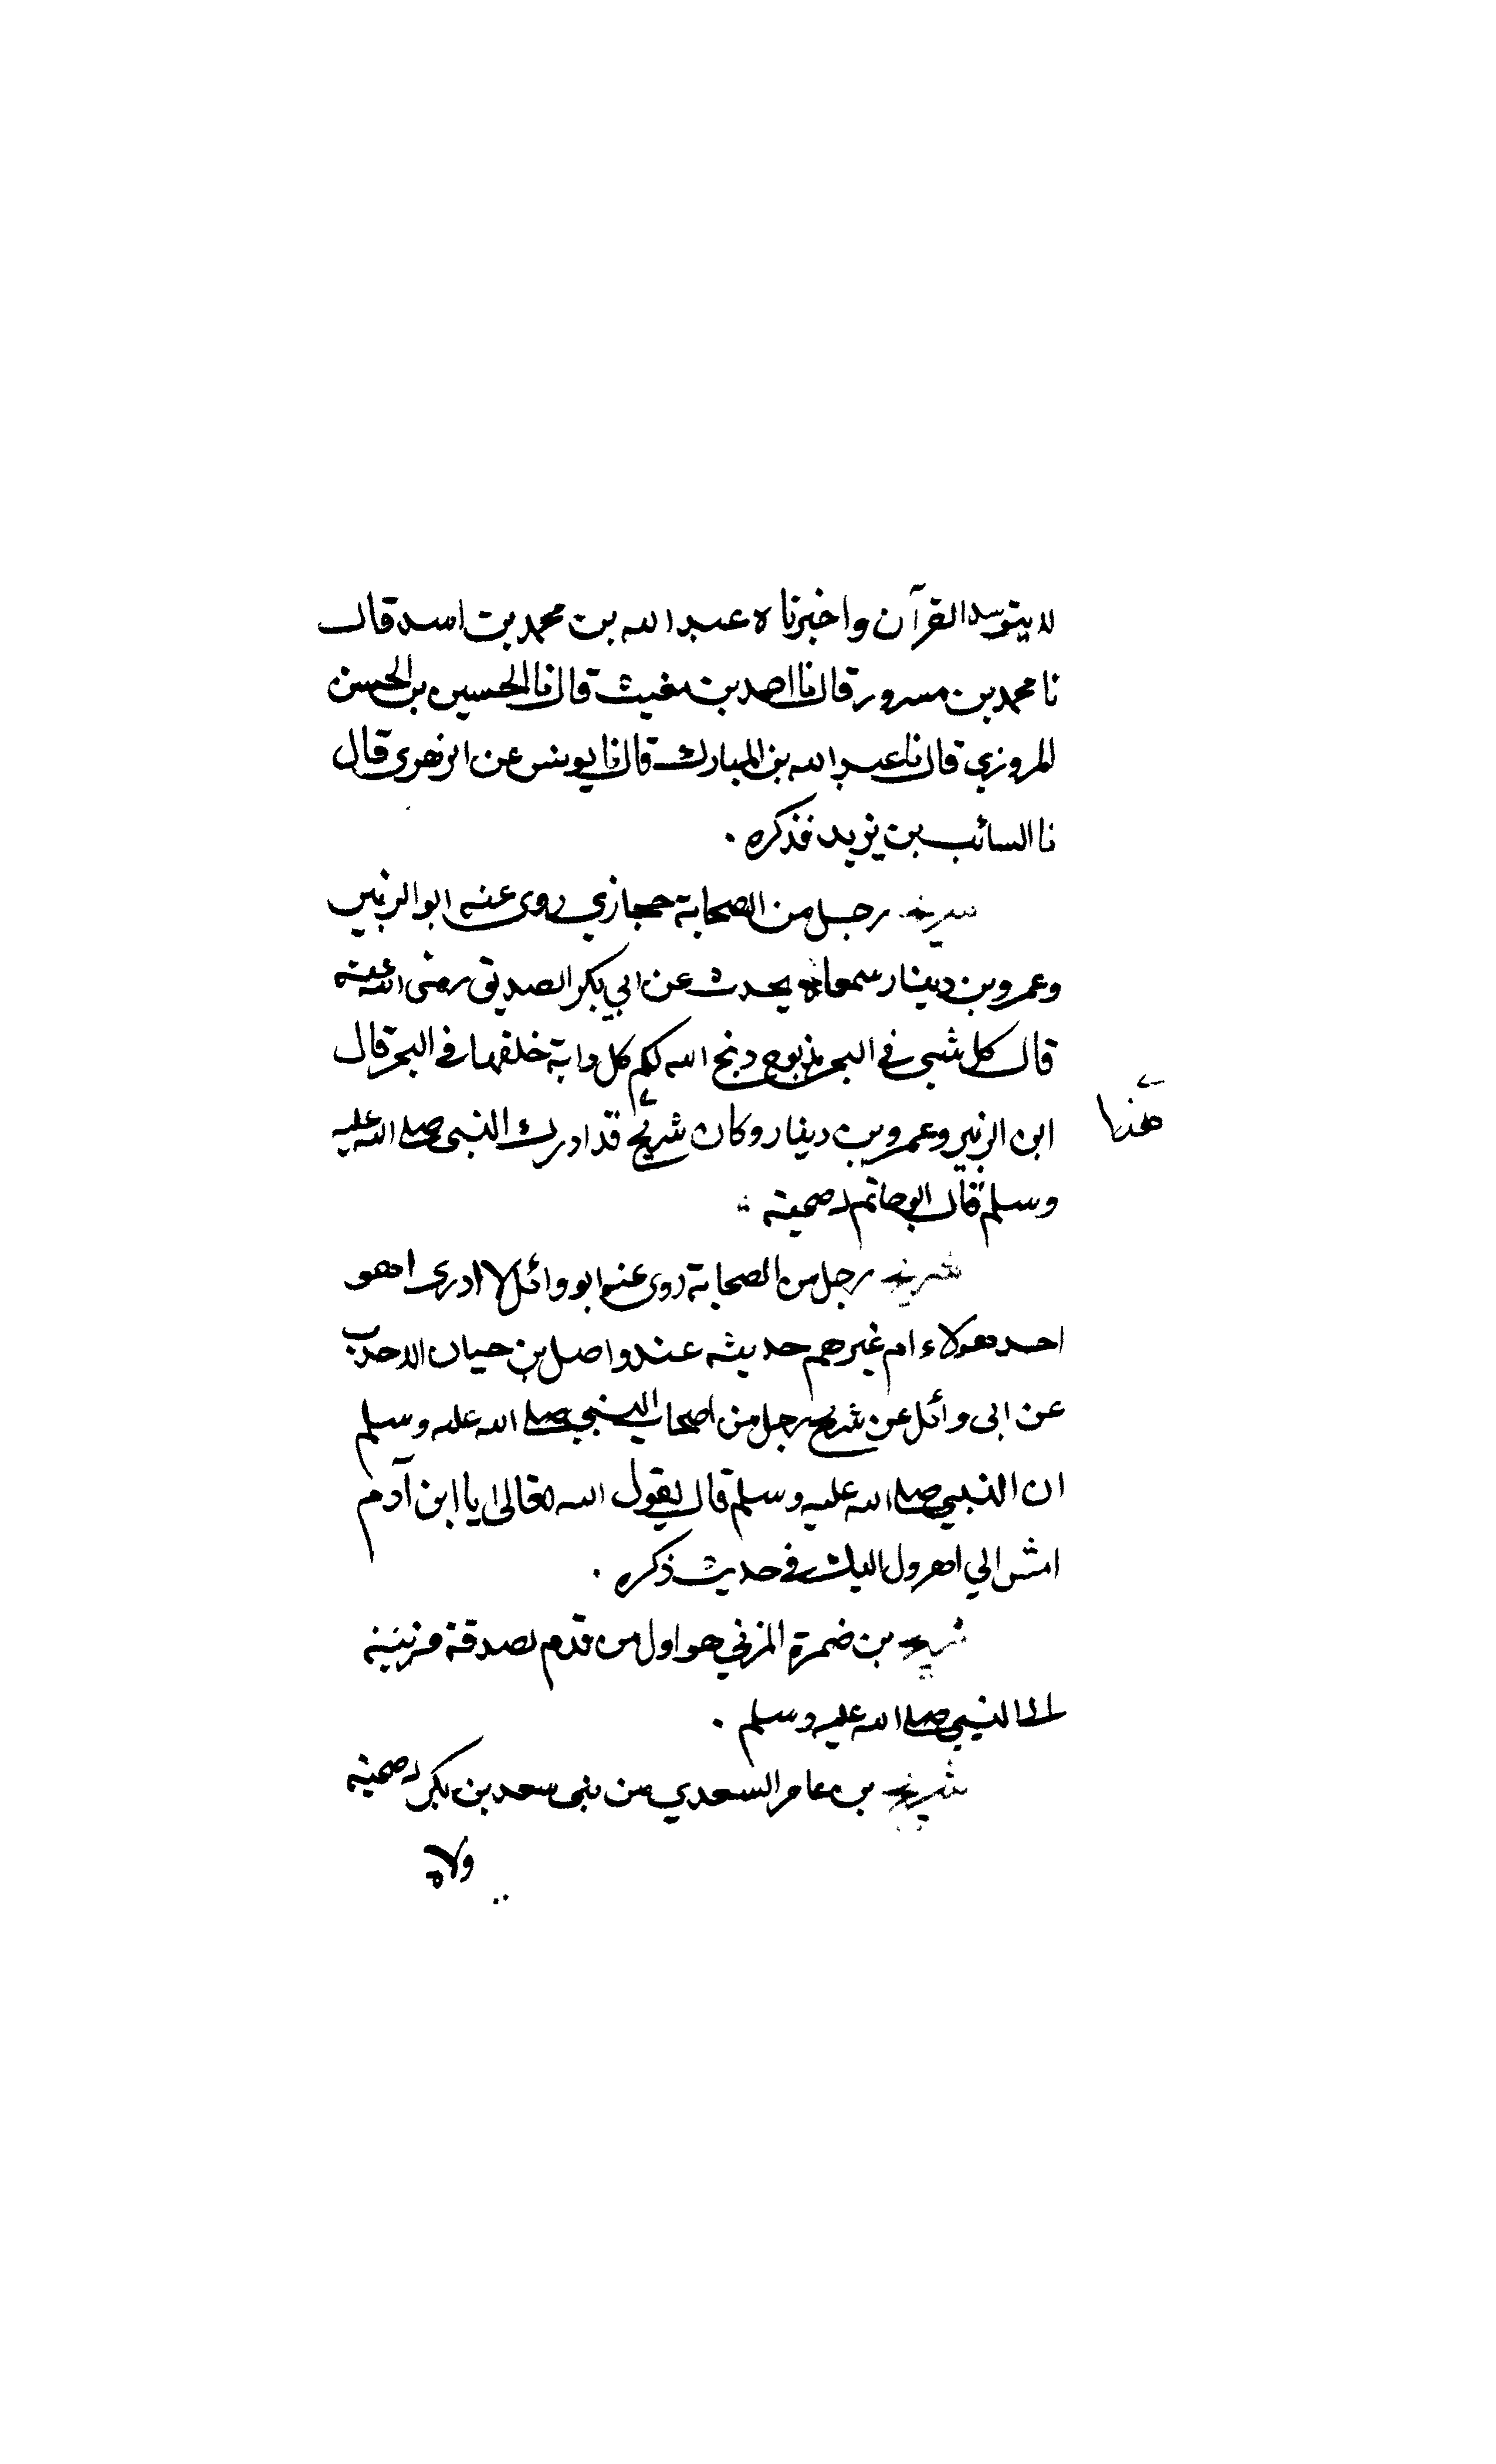 لا يتوسد القرآن واخبرناه عبد الله بن محمد بن اسد قال
نا محمد بن مسرور قال نا احمد بن مغيث قال نا الحسين بن الحسن
المروزي قال نا عبد الله بن المبارك قال نا يونس عن الزهرى قال
نا السائب بن يزيد فذكره .
شريح رجل من الصحابة حجازي روى عنه ابو الزبير
وعمرو بن دينار سمعاه يحدث عن ابي بكر الصديق رضى الله عنه
قال كل شي في البحر مذبوح ذبح الله لكم كل دابة خلقها في البحر قال
ابن الزبير وعمرو بن دينار وكان شريح قد ادرك النبى صلى الله عليه
هكذا
وسلم قال ابو حاتم له صحبة
شريح رجل من الصحابة روى عنه ابو وائل لا ادرى اهو
احد هولاء ام غيرهم حديثه عند واصل بن حيان الاحدب
عن ابى وائل عن شريح رجل من اصحاب النبي صلى الله عليه وسلم
ان النبي صلى الله عليه وسلم قال يقول الله تعالى يا ابن آدم
امش الي اهرول اليك في حديث ذكره .
شريح بن ضمرة المزني هو اول من قدم بصدقة مزينة
الى النبي صلى الله عليه وسلم .
شريح بن عامر السعدي من بنى سعد بن بكر له صحبة
ولاه